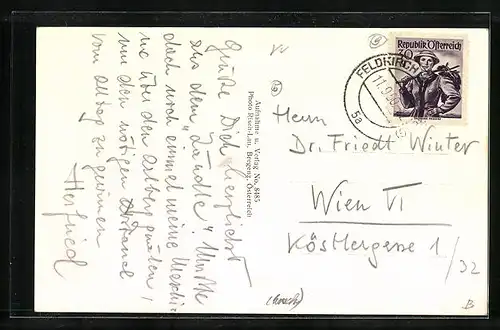 Grüße Dich herzlichst
aus dem „Ländle“. Mußte
doch noch einmal meine
ne über den Arlberg
um den nötigen Abstand
vom Alltag zu gewinnen
Herfried
Aufnahme u. Verlag No. 8485
Photo Risch-Lau, Bregenz-Österreich
Republik Österreich
30
FELDKIRCH
11.9
5a
Herrn
Dr. Friedl Winter
Wien VI
Köstlergasse 1/32
B